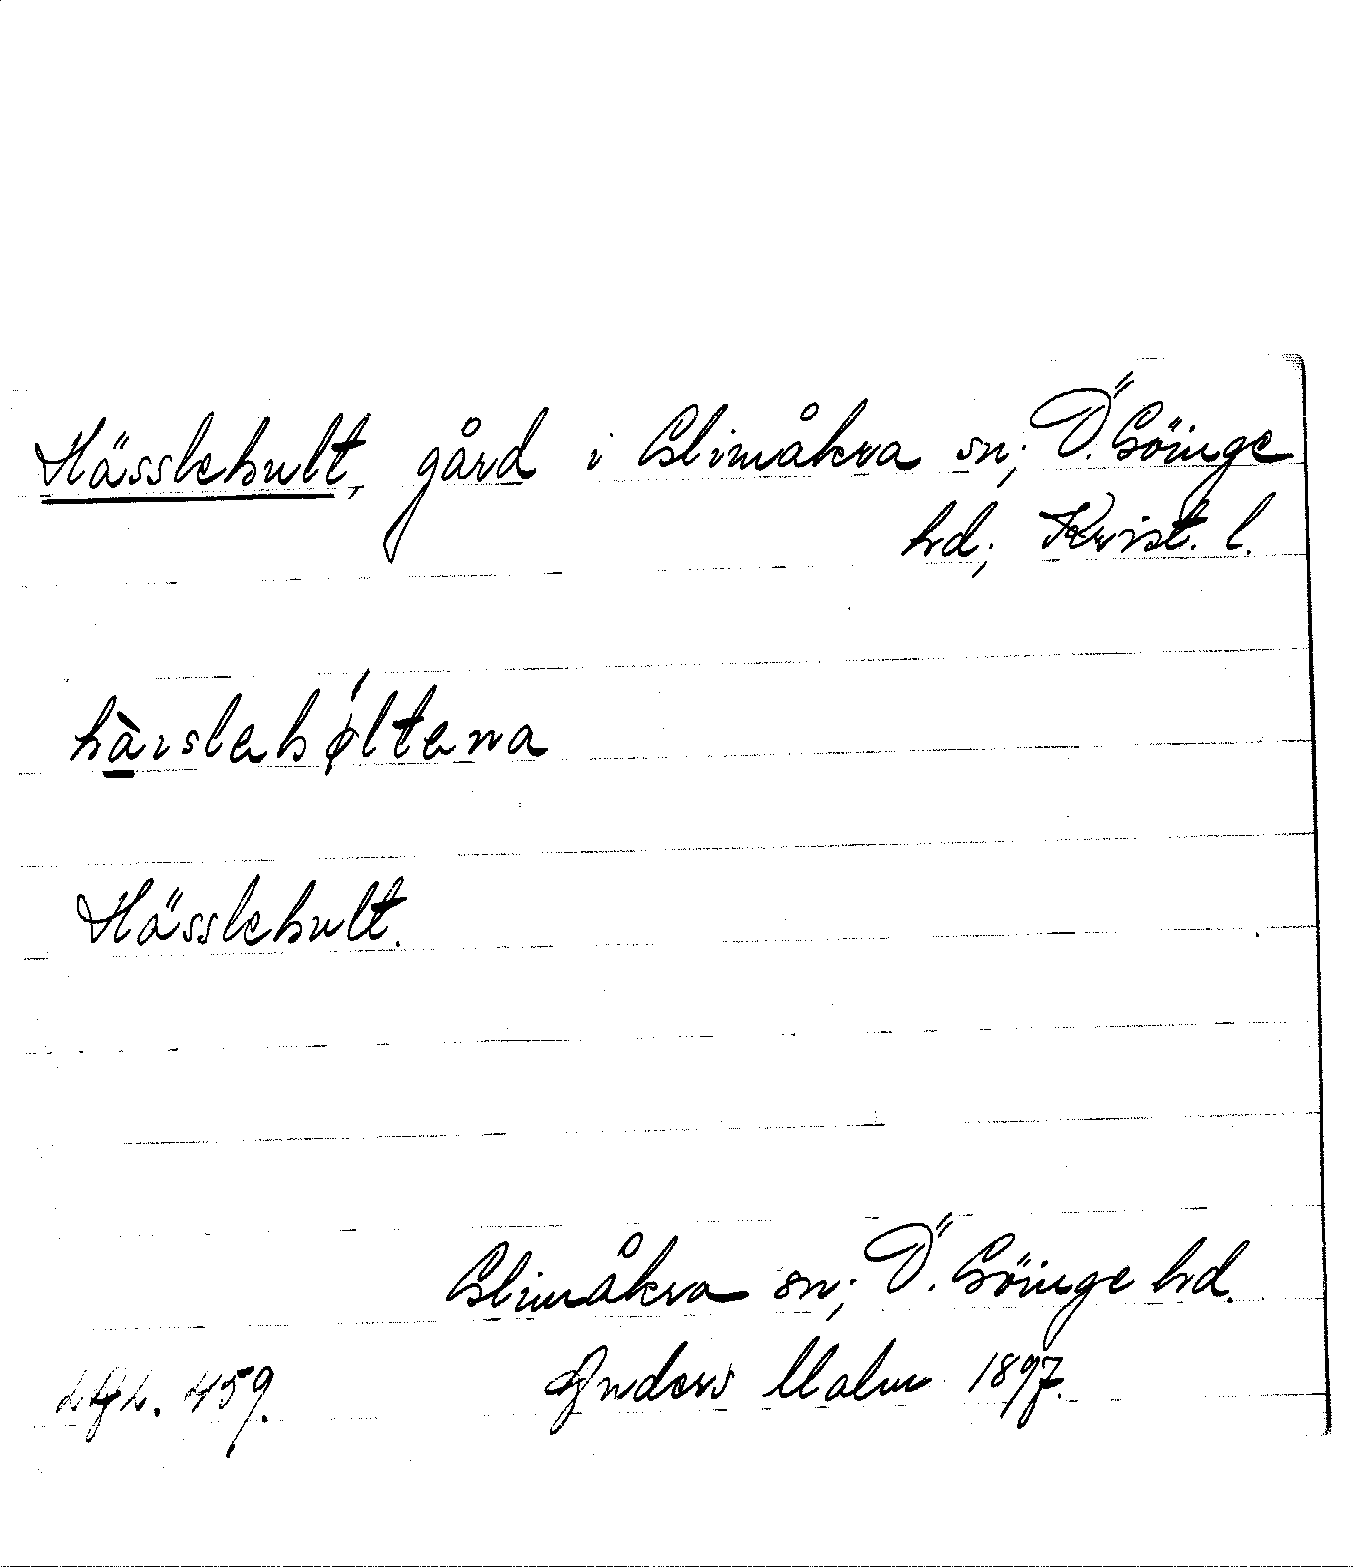 Hässlehult, gård i Glimåkra sn; Ö. Göinge
hd; Krist. l.
Hässlehult.
Glimåkra sn; Ö. Göinge hd.
459. Anders Malm 1897.